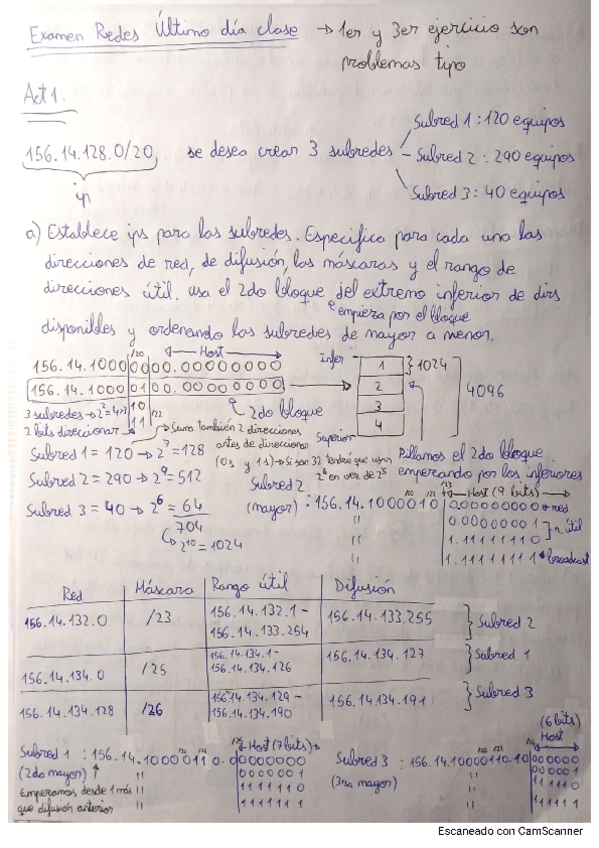 Examen Redes Último día clase → 1er y 3er ejercicio son
problemas tipo
Act 1.
156.14.128.0/20 se desea crear 3 subredes
Subred 1 : 120 equipos
Subred 2 : 290 equipos
Subred 3 : 40 equipos
ip
a) Establece ips para las subredes. Especifica para cada una las
direcciones de red, de difusión, las máscaras y el rango de
direcciones útil. usa el 2do bloque del extremo inferior de dirs
empieza por el bloque
disponibles y ordenando las subredes de mayor a menor.
/20 Host
156.14.1000 00 00.00000000
156.14.1000 01 00.00000000
10
11 /22
3 subredes → 2²=4>3
2 bits direccionar
2do bloque
Infer
1
2
3
4
Superior
1024
4096
Suma también 2 direcciones
antes de direccionar
(0s y 1s) → Si son 32 tendré que usar
2⁶ en vez de 2⁵
Subred 1 = 120 → 2⁷ = 128
Subred 2 = 290 → 2⁹ = 512
Subred 3 = 40 → 2⁶ = 64
704
2¹⁰ = 1024
Pillamos el 2do bloque
empezando por los inferiores
Subred 2
(mayor) : 156.14.1000010
/20 /22 /23 Host (9 bits)
0.00000000 red
0.00000001
1.11111110
r. útil
1.11111111 broadcast
Red Máscara Rango útil Difusión
156.14.132.0 /23 156.14.132.1 - 156.14.133.254 156.14.133.255 Subred 2
156.14.134.0 /25 156.14.134.1 - 156.14.134.126 156.14.134.127 Subred 1
156.14.134.128 /26 156.14.134.129 - 156.14.134.190 156.14.134.191 Subred 3
Subred 1 : 156.14.1000011 0.0 0000000
Host (7 bits)
(2do mayor)
0000001
Empezamos desde 1 más
1111110
que difusión anterior
1111111
Subred 3 : 156.14.10000110.10 000000
(6 bits)
Host
(3ra mayor)
000001
111110
111111
Escaneado con CamScanner